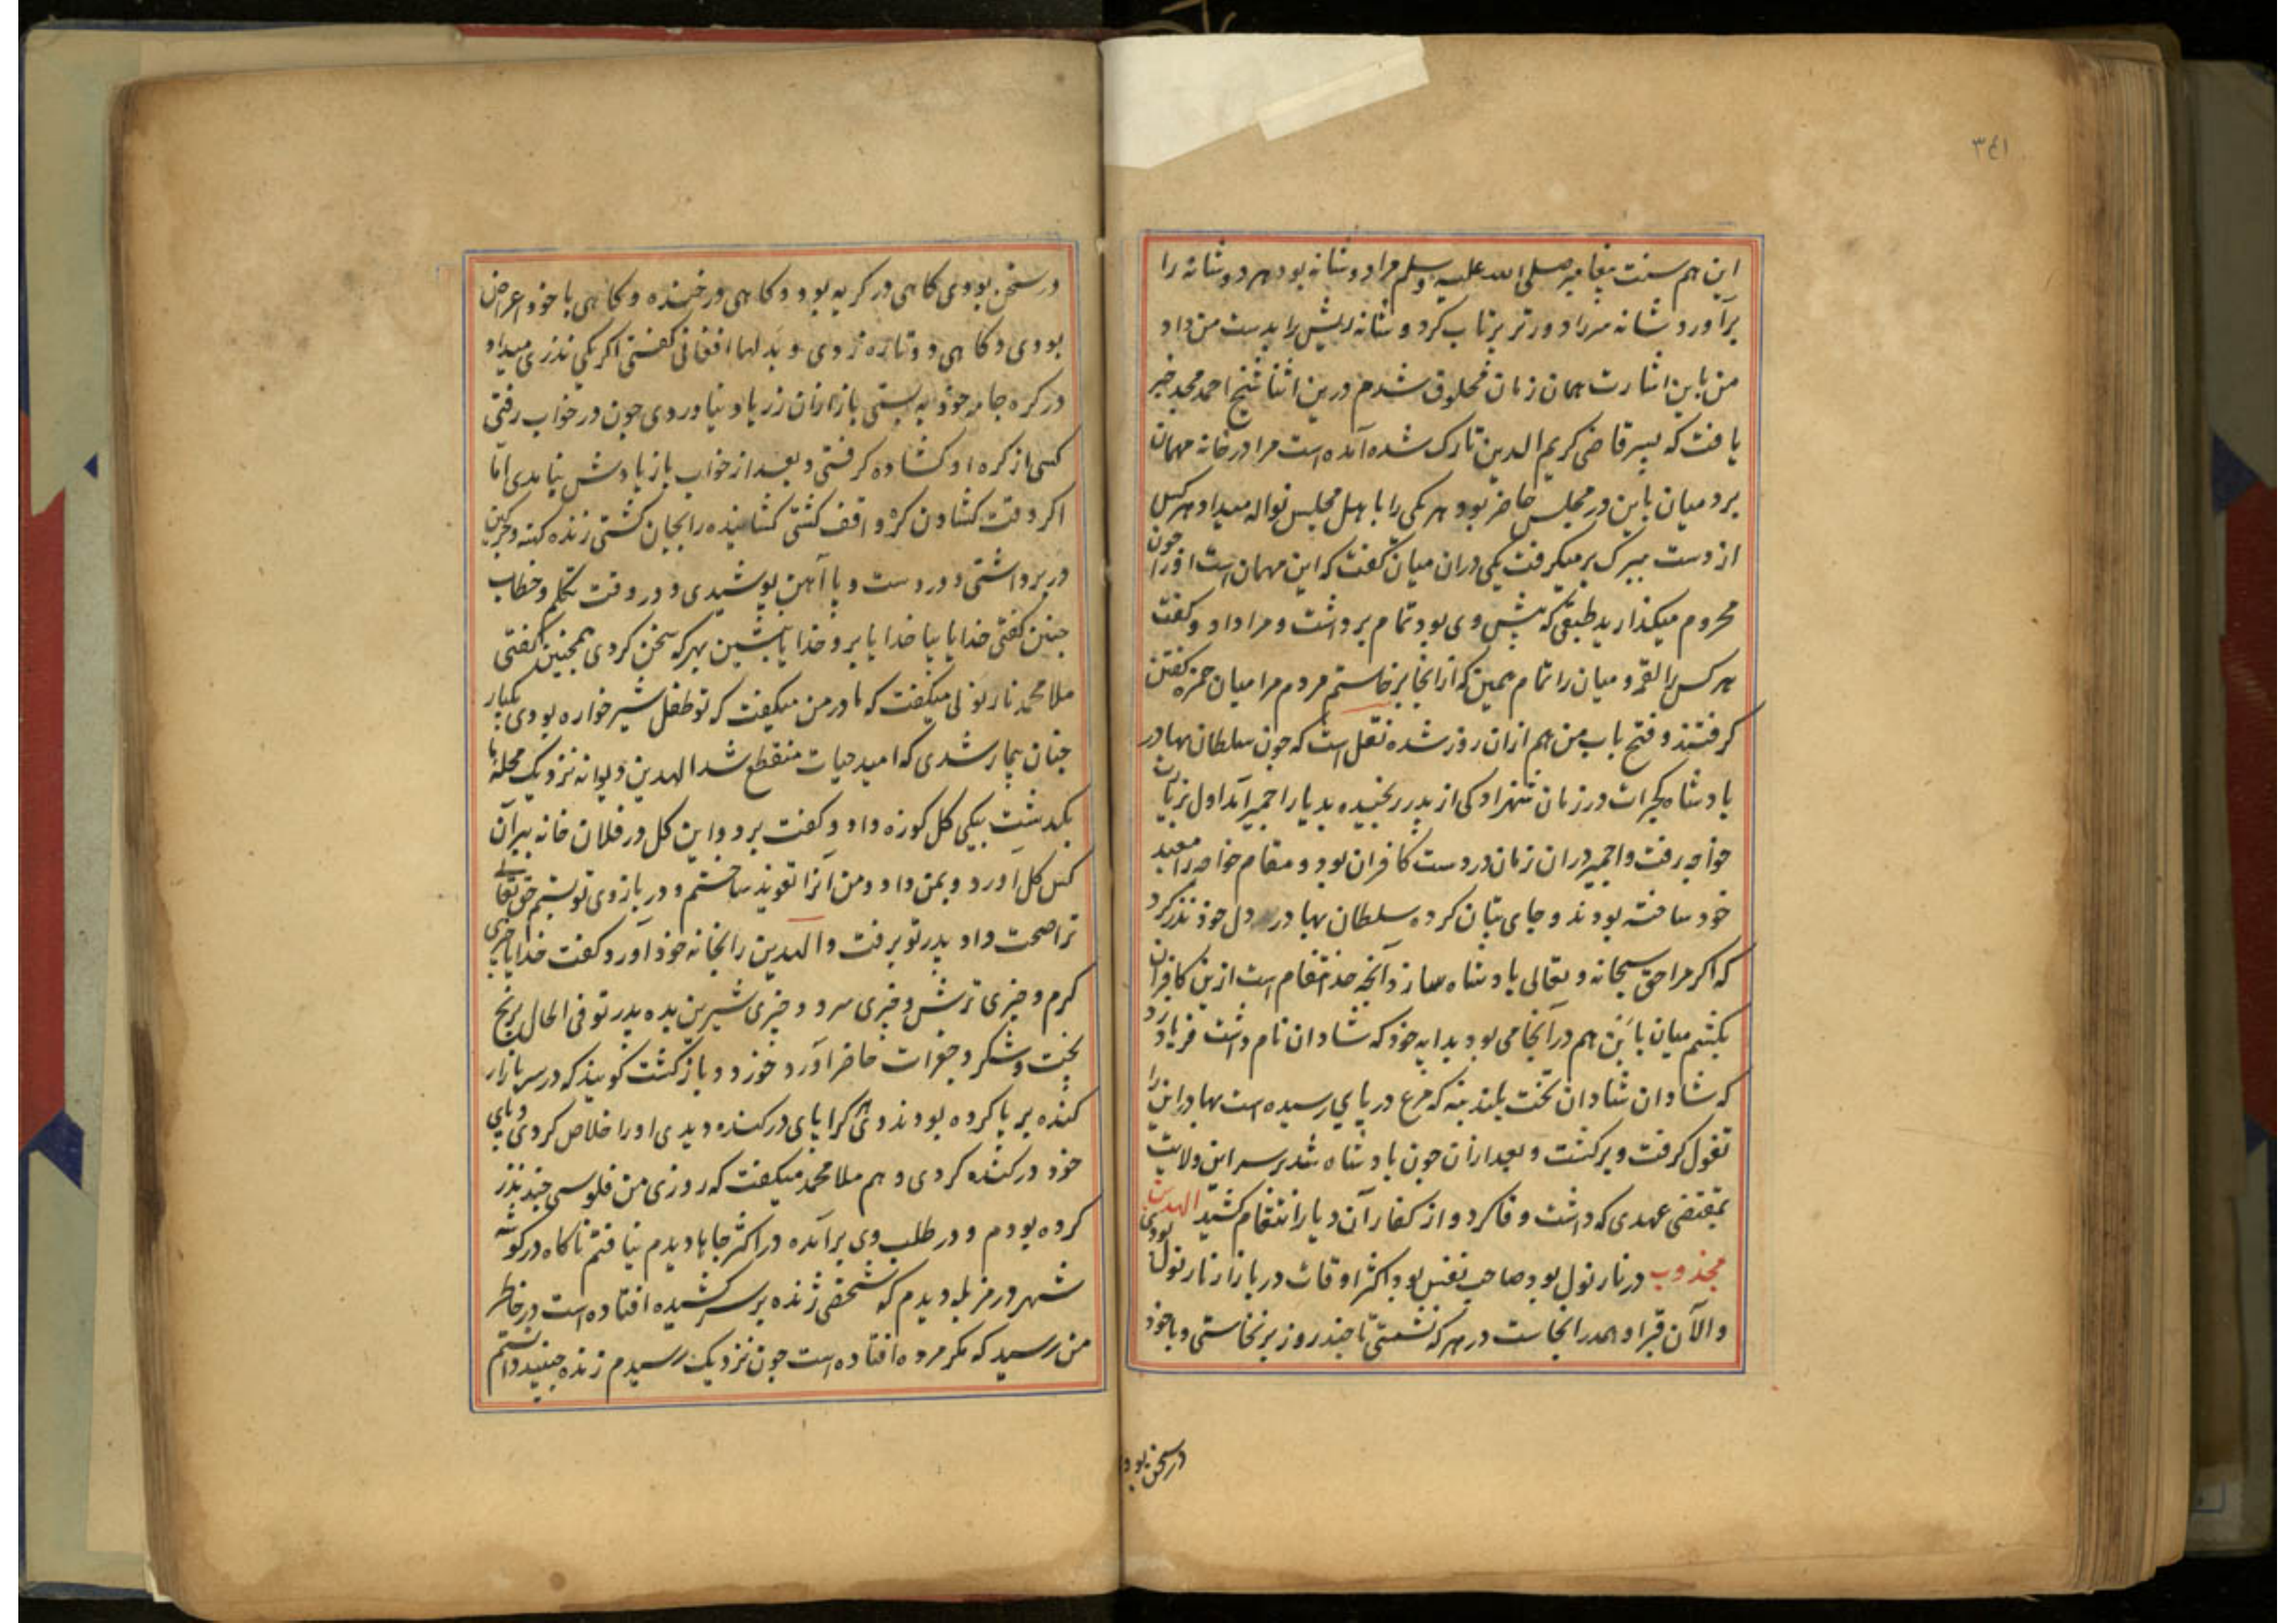 ٣٤١
این هم سنت پیغامبر صلی الله علیه وسلم مرا دو شانه بود هر دو شانه را
برآورد شانه سر را دورتر پرتاب کرد و شانه ریش را بدست من داد
من باین اشارت همان زمان محلوق شدم درین اثنا شیخ احمد مجد خبر
یافت که پسر قاضی کریم الدین تارک شده آمده است مرا در خانه مهمان
برد میان باین در مجلس حاضر بود هر یکی را با اهل مجلس نواله میداد هر کس
از دست تبرک بر میگرفت یکی دران میان گفت که این مهمان است او را چون
محروم میگذارید طبقی که پیش وی بود تمام برداشت و مرا داد و گفت
هر کس را لقمه و میان را تمام همین که از انجا برخاستم مردم مرا میان حمزه گفتن
گرفتند و فتح باب من هم ازان روز شده نقل است که چون سلطان بهادر
بادشاه گجرات در زمان شهزادگی از پدر رنجیده بدیار اجمیر آمد اول بزیارت
خواجه رفت و اجمیر دران زمان در دست کافران بود و مقام خواجه را معبد
خود ساخته بودند و جای بتان کرده سلطان بهادر در دل خود نذر کرد
که اگر مرا حق سبحانه و تعالی بادشاه سازد آنچه حد انتقام است ازین کافران
بکشم میان باین هم در آنجا می بود بدایه خود که شادان نام داشت فریاد زد
که شادان شادان تخت بلند بنه که مرغ در پای رسیده است بهادر این را
تفول گرفت و برگشت و بعد ازان چون بادشاه شد بر سر این ولایت
بمقتضی عهدی که داشت وفا کرد و از کفار آن دیار انتقام کشید الهدین
مجذوب در نارنول بود صاحب نفس بود اکثر اوقات در بازار نارنول بودی
والآن قبر او همدرانجاست در هر که نشستی تا چند روز برنخاستی و با خود
در سخن بود
در سخن بودی گاهی در گریه بود و گاهی در خنده و گاهی با خود اعراض
بودی و گاهی دوتاره زدی و بدلها افغانی گفتی اگر یکی نذری میداد
در گره جامه خود به بستی باز ازان زر یاد نیاوردی چون در خواب رفتی
کسی از گره او گشاده گرفتی و بعد از خواب باز یادش نیامدی اما
اگر وقت گشادن گره واقف گشتی گشاینده را بجان گشتی ژنده کهنه و چرکین
در بر داشتی و در دست و پا آهن پوشیدی و در وقت تکلم و خطاب
چنین گفتی خدایا بیا خدایا برو خدایا بنشین بهر که سخن کردی همچنین گفتی
ملا محمد نارنولی میگفت که مادر من میگفت که تو طفل شیرخواره بودی یکبار
چنان بیمار شدی که امید حیات منقطع شد الهدین دیوانه نزدیک محله ما
بگذشت بیکی گل کوزه داد و گفت برو و این گل در فلان خانه ببر آن
کس گل آورد و بمن داد و من آنرا تعویذ ساختم و در بازوی تو بستم حق تعالی
ترا صحت داد پدر تو برفت و الهدین را بخانه خود آورد گفت خدایا چیزی
گرم و چیزی ترش و چیزی سرد و چیزی شیرین بده پدر تو فی الحال برنج
پخت و شکر و جغرات حاضر آورد خورد و باز گشت گویند که در سر بازار
کنده بر پا کرده بودند وی هر کرا پای در کنده دیدی او را خلاص کردی و پای
خود در کنده کردی و هم ملا محمد میگفت که روزی من فلوسی چند نذر
کرده بودم و در طلب وی برآمده در اکثر جاها دیدم نیافتم ناگاه در گوشه
شهر در مزبله دیدم که شخصی ژنده بر سر کشیده افتاده است در خاطر
من رسید که مگر مرده افتاده است چون نزدیک رسیدم ژنده جنبید دانستم